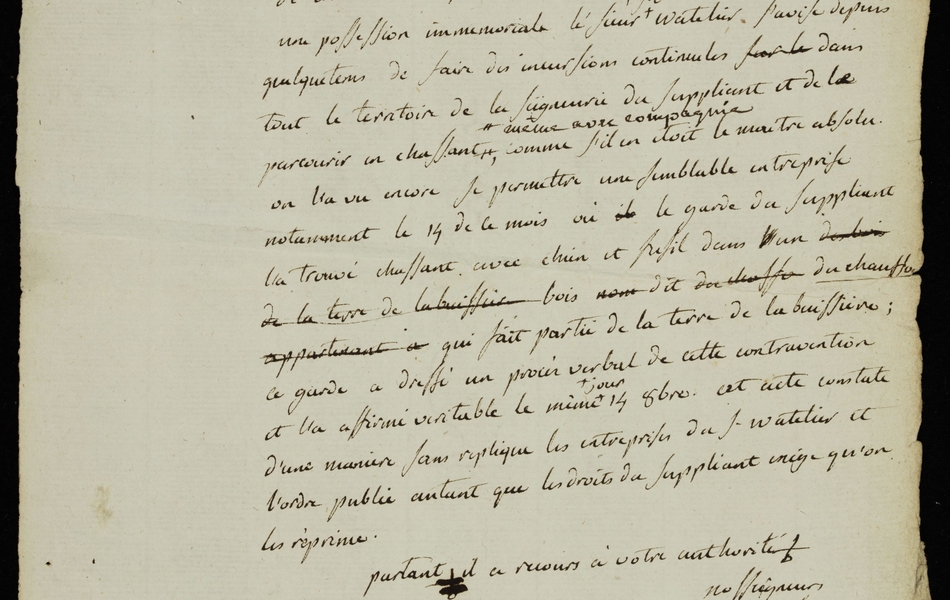 une possession immemoriale le sieur + watelier, s'avise depuis
quelquetems de faire des incursions continuelles sur le dans
tout le territoire de la seigneurie du suppliant et de le
même avec compagnie
parcourir en chassant, comme s'il en etoit le maitre absolu.
on l'a vu encore se permettre une semblable entreprise
notamment le 14 de ce mois où il le garde du suppliant
l'a trouvé chassant avec chien et fusil dans un des bois
de la terre de labuissiere bois nom dit du chauffo du chauffo
appartenant a qui fait partie de la terre de la buissiere;
ce garde a dressé un procès verbal de cette contravention
+ jour
et l'a affirmé veritable le même + 14 8bre. cet acte constate
d'une maniere sans replique les entreprises du s. watelier et
l'ordre public autant que les droits du suppliant exige qu'on
les reprime.
partant il a recours à votre authorité
nosseigneurs